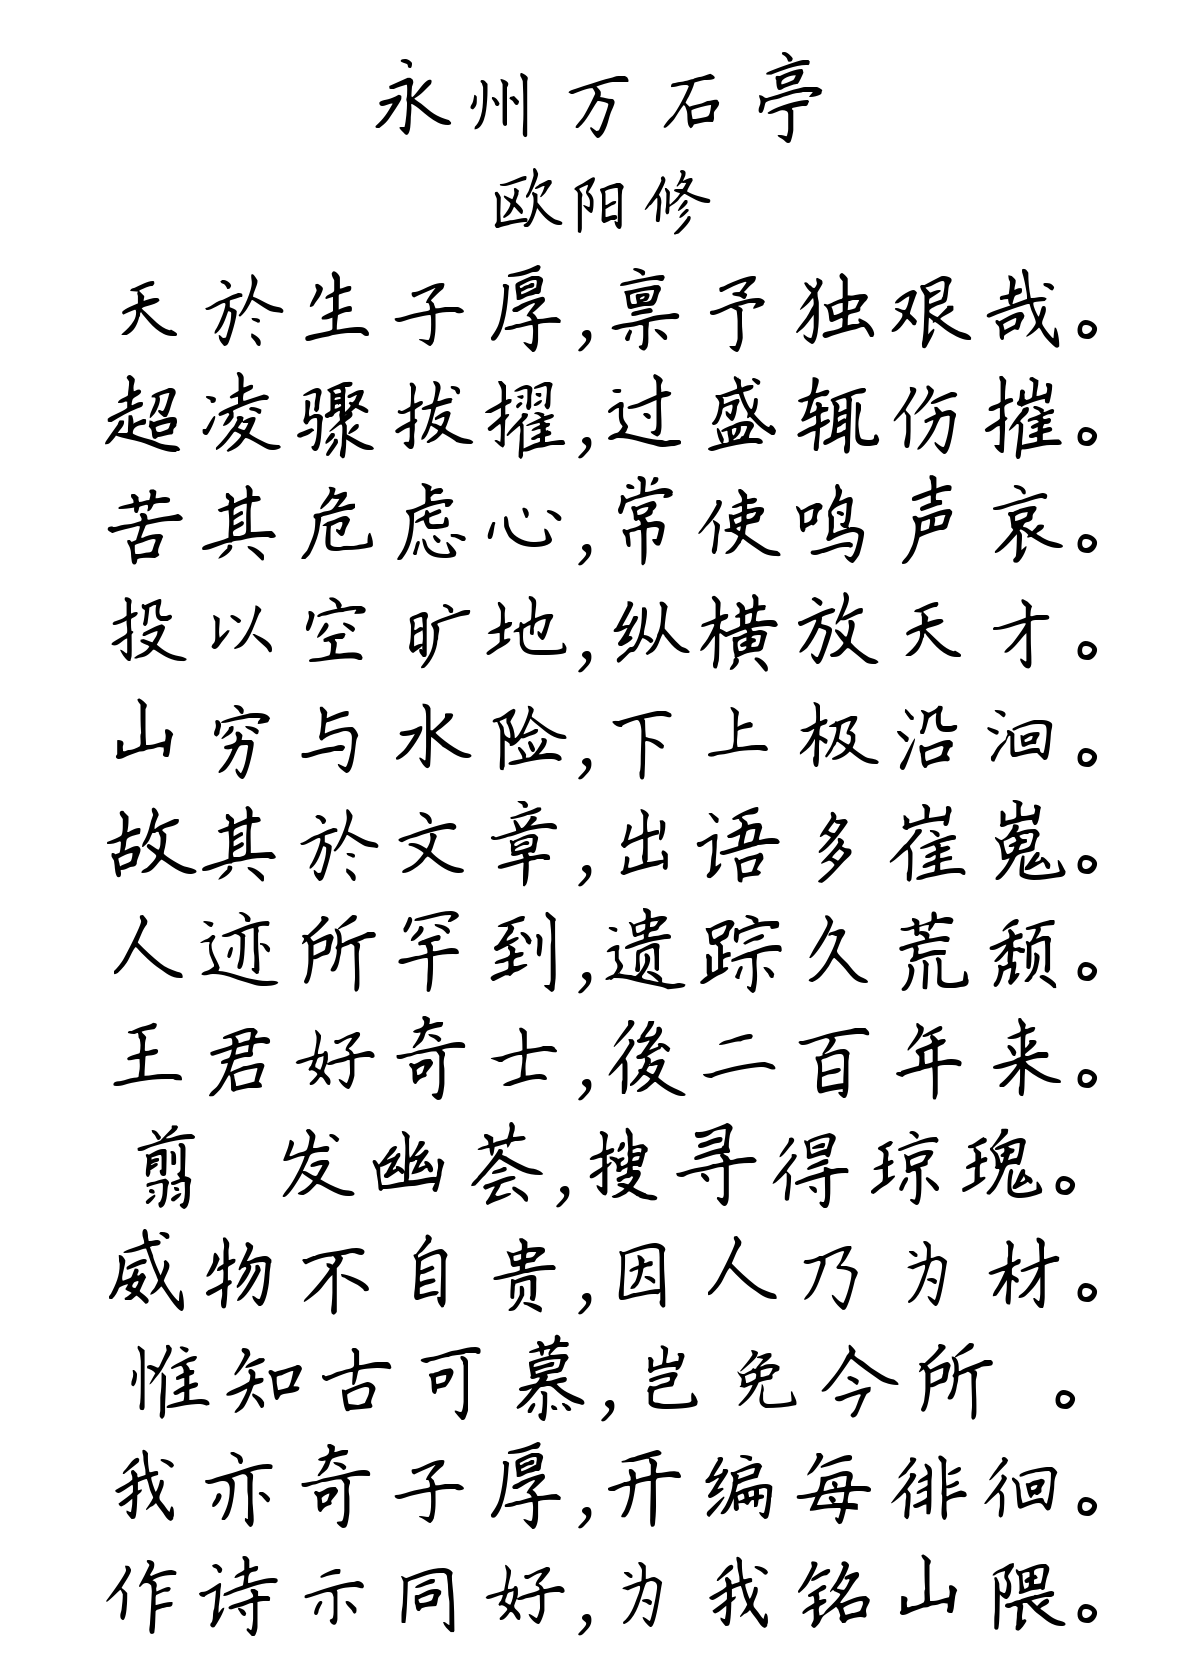 永州万石亭
欧阳修
天於生子厚,禀予独艰哉。
超凌骤拔擢,过盛辄伤摧。
苦其危虑心,常使鸣声哀。
投以空旷地,纵横放天才。
山穷与水险,下上极沿洄。
故其於文章,出语多崔嵬。
人迹所罕到,遗踪久荒颓。
王君好奇士,後二百年来。
翦 发幽荟,搜寻得琼瑰。
威物不自贵,因人乃为材。
惟知古可慕,岂免今所 。
我亦奇子厚,开编每徘徊。
作诗示同好,为我铭山隈。